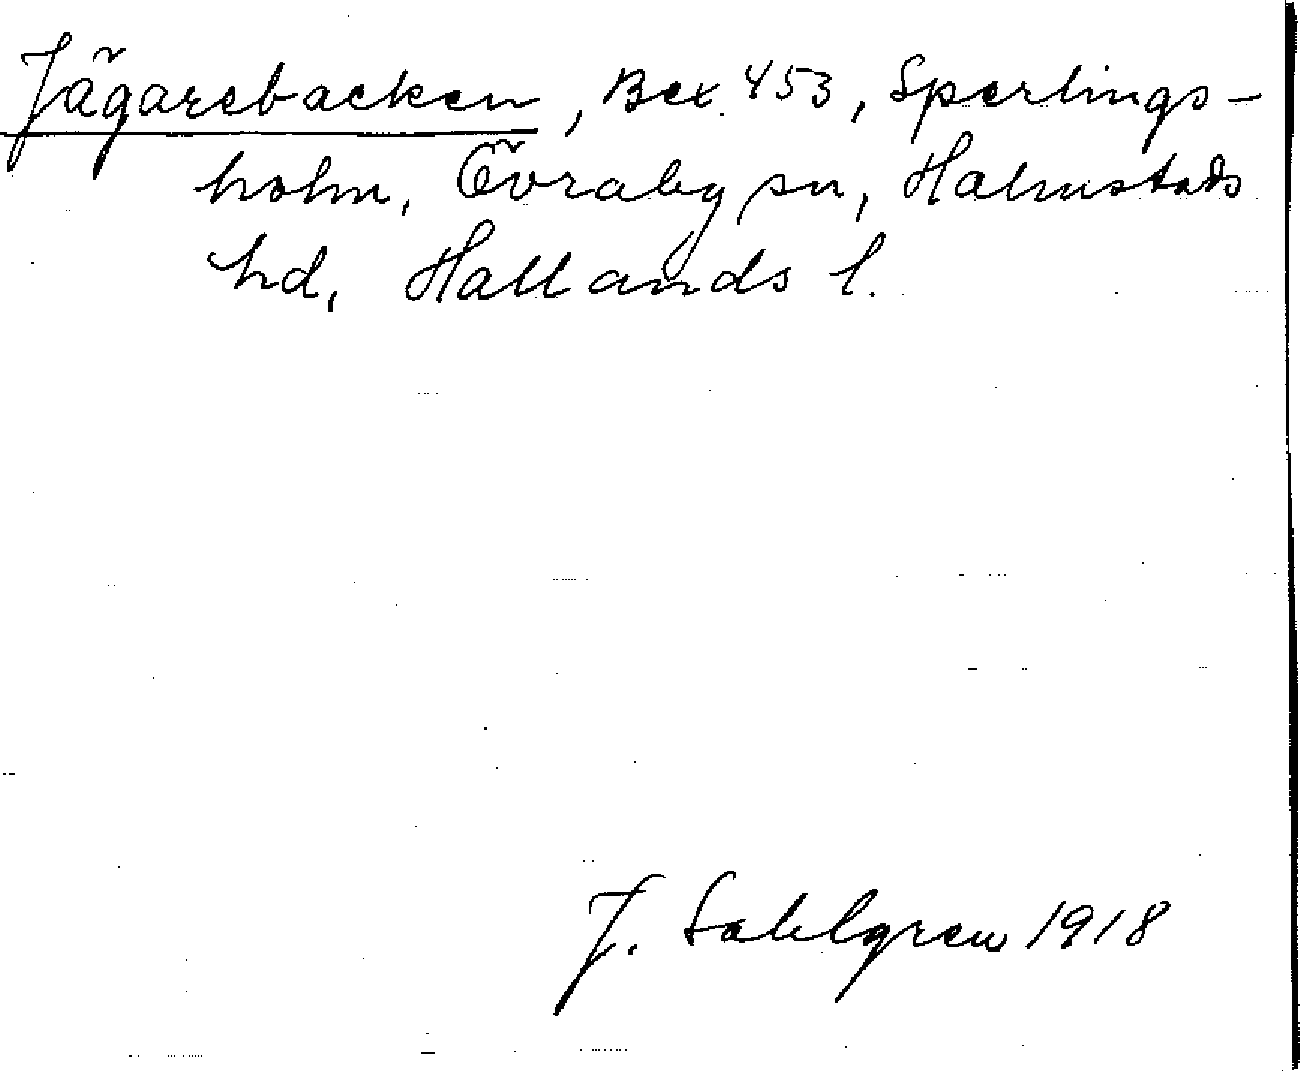 Jägarebacken, Bex. 453, Sperlings-
holm, Övraby sn, Halmstads
hd, Hallands l.
J. Sahlgren 1918